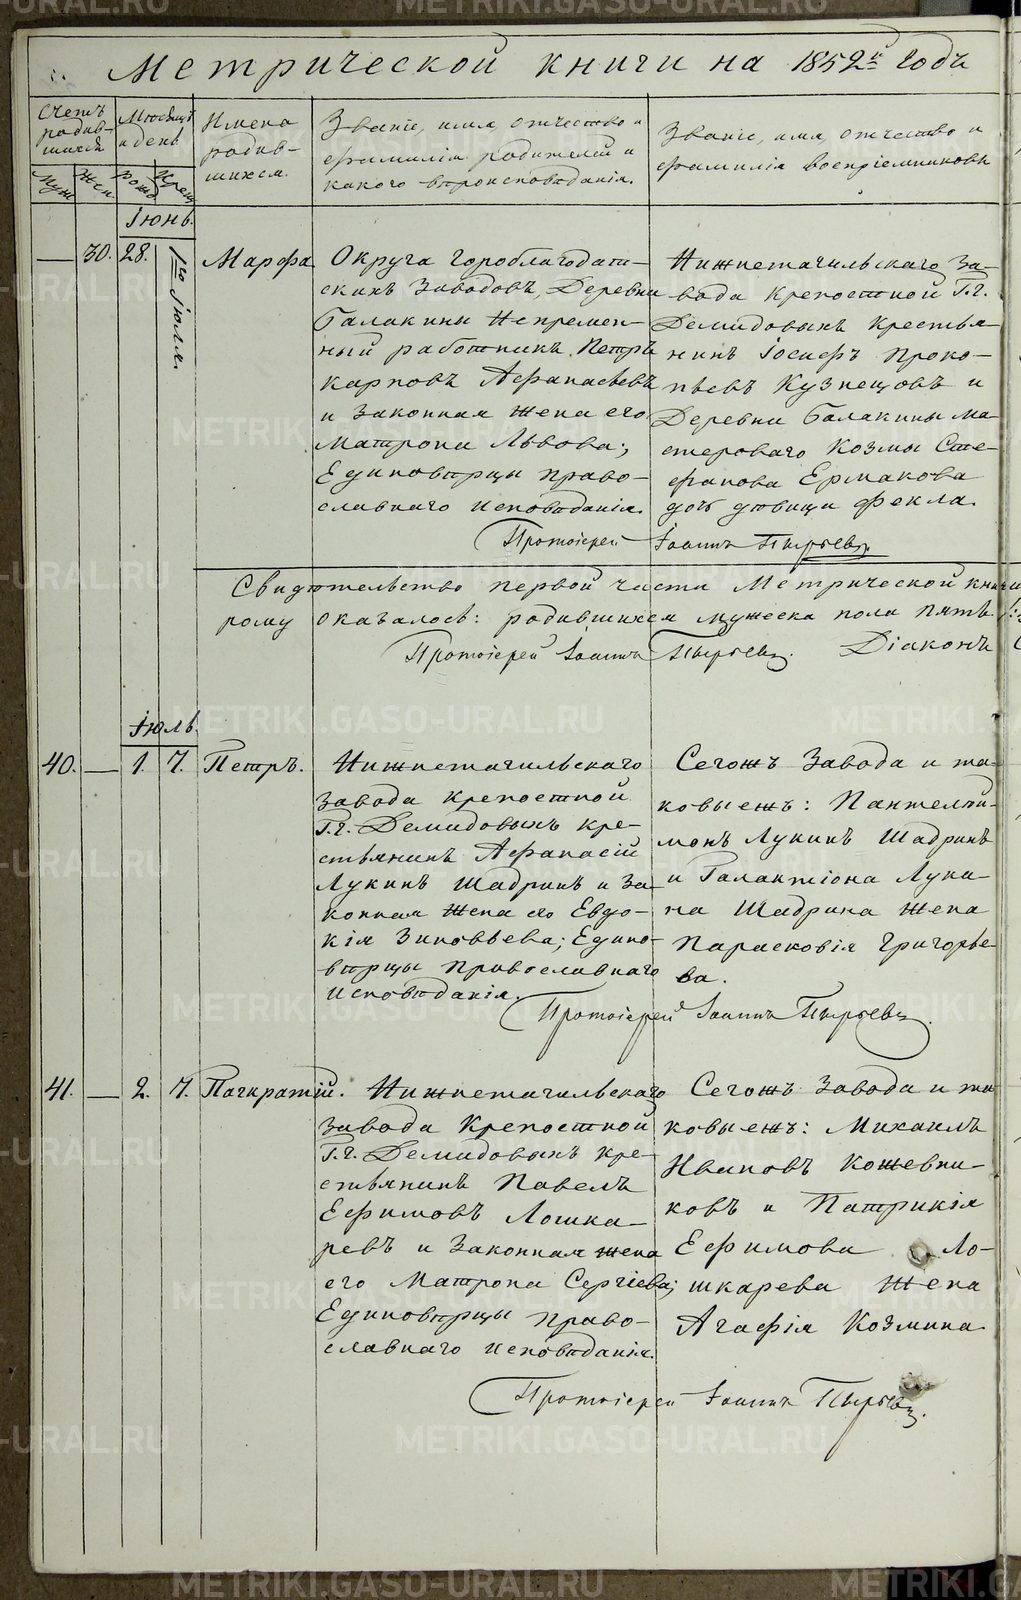 Метрической книги на 1852й Годъ
Счетъ родив-шихся
Муж.
Жен.
Мѣсяцъ и день
Рожд.
Крещ.
Имена родив-шихся.
Званіе, имя, отчество и
фамилія родителей и
какого вѣроисповѣданія.
Званіе, имя, отчество и
фамилія воспріемниковъ
Іюнь.
— 30. 28. 1го Іюля. Марфа
Округа Гороблагодат-
скихъ Заводовъ, Деревни
Балакины Непремен-
ный работникъ Петръ
Карповъ Афанасьевъ
и Законная Жена его
Матрона Львова;
Единовѣрцы право-
славнаго исповѣданія.
Нижнетагильскаго За-
вода Крепостной Г.г.
Демидовыхъ Крестья-
нинъ Іосифъ Проко-
пьевъ Кузнецовъ и
Деревни Балакины Ма-
стероваго Козмы Сте-
фанова Ермакова
дочь дѣвица Фекла.
Протоіерей Іоаннъ Пырьевъ
Свидѣтельство первой части Метрической книги
рому оказалось: родившихся мужеска пола пять
Протоіерей Іоаннъ Пырьевъ. Діаконъ
Іюль.
40. — 1. 7. Петръ.
Нижнетагильскаго
Завода Крепостной
Г.г. Демидовыхъ Кре-
стьянинъ Афанасій
Лукинъ Шадринъ и За-
конная Жена его Евдо-
кія Зиновьева; Едино-
вѣрцы православнаго
исповѣданія.
Сегожъ Завода и та-
ковыежъ: Пантелей-
монъ Лукинъ Шадринъ
и Галактіона Луки-
на Шадрина Жена
Парасковія Григорье-
ва.
Протоіерей Іоаннъ Пырьевъ.
41. — 2. 7. Панкратій.
Нижнетагильскаго
Завода Крепостной
Г.г. Демидовыхъ Кре-
стьянинъ Павелъ
Ефимовъ Лошка-
ревъ и Законная жена
его Матрона Сергіева;
Единовѣрцы право-
славнаго исповѣданія.
Сегожъ Завода и та-
ковыежъ: Михаилъ
Ивановъ Кожевни-
ковъ и Патрикія
Ефимова Ло-
шкарева Жена
Агафія Козмина.
Протоіерей Іоаннъ Пырьевъ.
METRIKI.GASO-URAL.RU